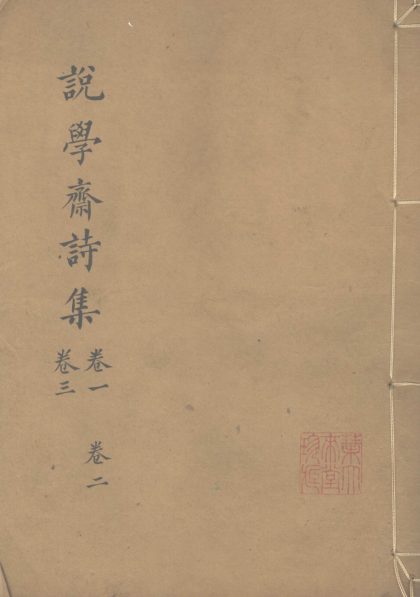 說學齋詩集
卷一 卷二
卷三